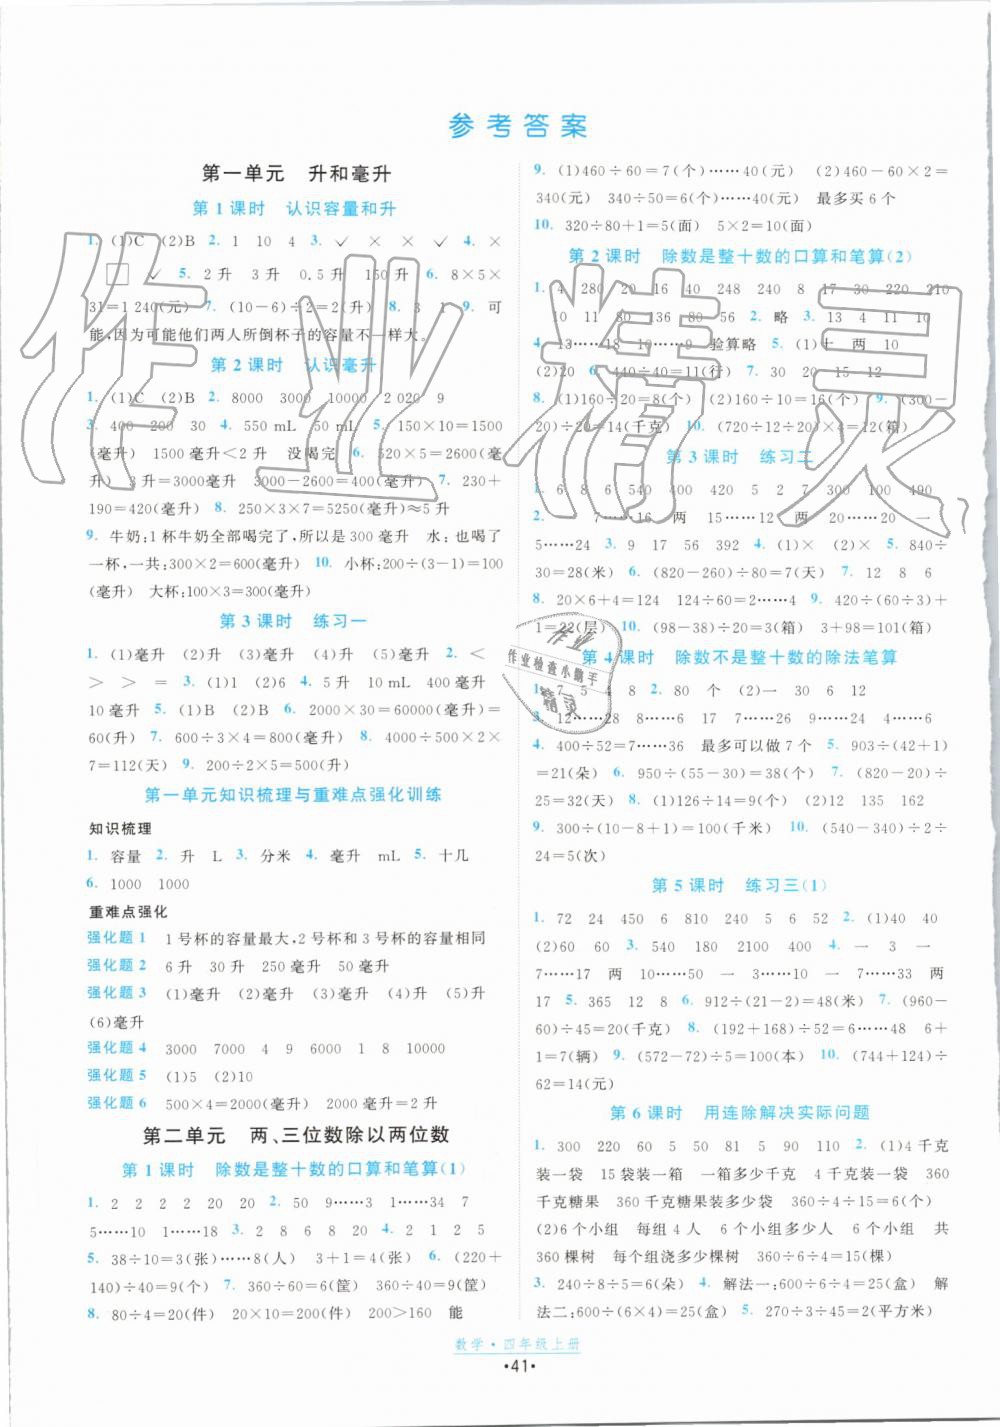 参考答案
第一单元 升和毫升
第1课时 认识容量和升
1. (1)C (2)B 2. 1 10 4 3. ✓ × × ✓ 4. ×
□ ✓ 5. 2升 3升 0.5升 150升 6. 8×5×
31=1 240(元) 7. (10-6)÷2=2(升) 8. 3 1 9. 可
能,因为可能他们两人所倒杯子的容量不一样大。
第2课时 认识毫升
1. (1)C (2)B 2. 8000 3000 10000 2 020 9
3. 400 200 30 4. 550 mL 50 mL 5. 150×10=1500
(毫升) 1500毫升<2升 没喝完 6. 520×5=2600(毫
升) 3升=3000毫升 3000-2600=400(毫升) 7. 230+
190=420(毫升) 8. 250×3×7=5250(毫升)≈5升
9. 牛奶:1杯牛奶全部喝完了,所以是300毫升 水:也喝了
一杯,一共:300×2=600(毫升) 10. 小杯:200÷(3-1)=100
(毫升) 大杯:100×3=300(毫升)
第3课时 练习一
1. (1)毫升 (2)升 (3)升 (4)升 (5)毫升 2. <
> > = 3. (1)1 (2)6 4. 5升 10 mL 400毫升
10毫升 5. (1)B (2)B 6. 2000×30=60000(毫升)=
60(升) 7. 600÷3×4=800(毫升) 8. 4000÷500×2×
7=112(天) 9. 200÷2×5=500(升)
第一单元知识梳理与重难点强化训练
知识梳理
1. 容量 2. 升 L 3. 分米 4. 毫升 mL 5. 十几
6. 1000 1000
重难点强化
强化题1 1号杯的容量最大,2号杯和3号杯的容量相同
强化题2 6升 30升 250毫升 50毫升
强化题3 (1)毫升 (2)毫升 (3)升 (4)升 (5)升
(6)毫升
强化题4 3000 7000 4 9 6000 1 8 10000
强化题5 (1)5 (2)10
强化题6 500×4=2000(毫升) 2000毫升=2升
第二单元 两、三位数除以两位数
第1课时 除数是整十数的口算和笔算(1)
1. 2 2 2 2 20 20 2. 50 9……3 1……34 7
5……10 1……18 3. 2 8 6 8 20 4. 2 1 2 5
5. 38÷10=3(张)……8(人) 3+1=4(张) 6. (220+
140)÷40=9(个) 7. 360÷60=6(筐) 360÷40=9(筐)
8. 80÷4=20(件) 20×10=200(件) 200>160 能
9. (1)460÷60=7(个)……40(元) (2)460-60×2=
340(元) 340÷50=6(个)……40(元) 最多买6个
10. 320÷80+1=5(面) 5×2=10(面)
第2课时 除数是整十数的口算和笔算(2)
1. 4 280 20 16 240 248 240 8 17 30 220 210
10 11 80 136 80 56 2. 略 3. 13 4 11 10
4. 13……18 12……9 9……9 验算略 5. (1)十 两 10
(2)20 6. 440÷40=11(行) 7. 30 20 15 12
8. (1)160÷20=8(个) (2)160÷10=16(个) 9. (300-
20)÷20=14(千克) 10. (720÷12÷20)×4=12(箱)
第3课时 练习二
1. 6 58 600 540 400 420 5 2 7 300 100 490
2. 一 7……16 两 15……12 两 20……20 一
5……24 3. 9 17 56 392 4. (1)× (2)× 5. 840÷
30=28(米) 6. (820-260)÷80=7(天) 7. 12 8 6
8. 20×6+4=124 124÷60=2……4 9. 42÷(60÷3)+
1=22(层) 10. (98-38)÷20=3(箱) 3+98=101(箱)
第4课时 除数不是整十数的除法笔算
1. 7 5 4 8 2. (1)一 80 (2)一 30 6 12
3. 12……28 8……6 17 7……26 9……24 4……6
4. 400÷52=7……36 最多可以做7个 5. 903÷(42+1)
=21(朵) 6. 950÷(55-30)=38(个) 7. (820-20)÷
25=32(天) 8. (1)22 (2)12 135 162
9. 300÷(10-8+1)=100(千米) 10. (540-340)÷2÷
24=5(次)
第5课时 练习三(1)
1. 72 24 450 6 810 240 5 6 52 2. (1)40 40
(2)60 60 3. 540 180 2100 400 4. 一 3 一
7……17 两 10……50 一 3……10 一 7……33 两
17 5. 365 12 8 6. 912÷(21-2)=48(米) 7. (960-
60)÷45=20(千克) 8. (192+168)÷52=6……48 6+
1=7(辆) 9. (572-72)÷5=100(本) 10. (744+124)÷
62=14(元)
第6课时 用连除解决实际问题
1. 300 220 60 5 50 81 5 90 110 2. (1)4千克
装一袋 15袋装一箱 一箱多少千克 4千克装一袋 360
千克糖果 360千克糖果装多少袋 360÷4=90(袋)
(2)6个小组 每组4人 6个小组多少人 6个小组 共
360棵树 每个组浇多少棵树 360÷6÷4=15(棵)
3. 240÷8÷5=6(朵) 4. 解法一:600÷6÷4=25(盒) 解
法二:600÷(6×4)=25(盒) 5. 270÷3÷45=2(平方米)
数学·四年级上册
·41·
作业精灵
作业
作业检查小帮手
精灵